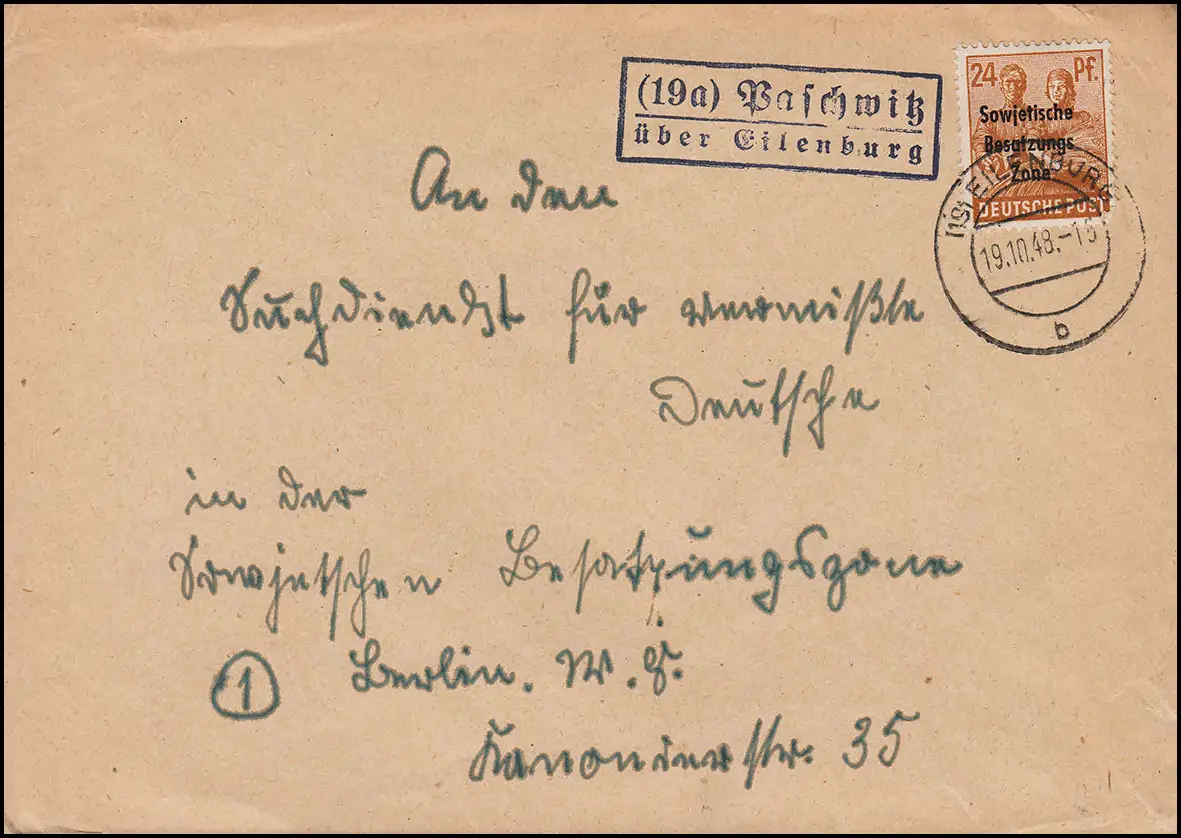 (19a) Paschwitz
über Eilenburg
24 Pf.
Sowjetische
Besatzungs
Zone
DEUTSCHE POST
(19) EILENBURG
19.10.48.-15
b
An den
Suchdienst für vermißte
Deutsche
in der
Sowjetschen Besatzungszone
1 Berlin. W. 8.
Kanonierstr. 35